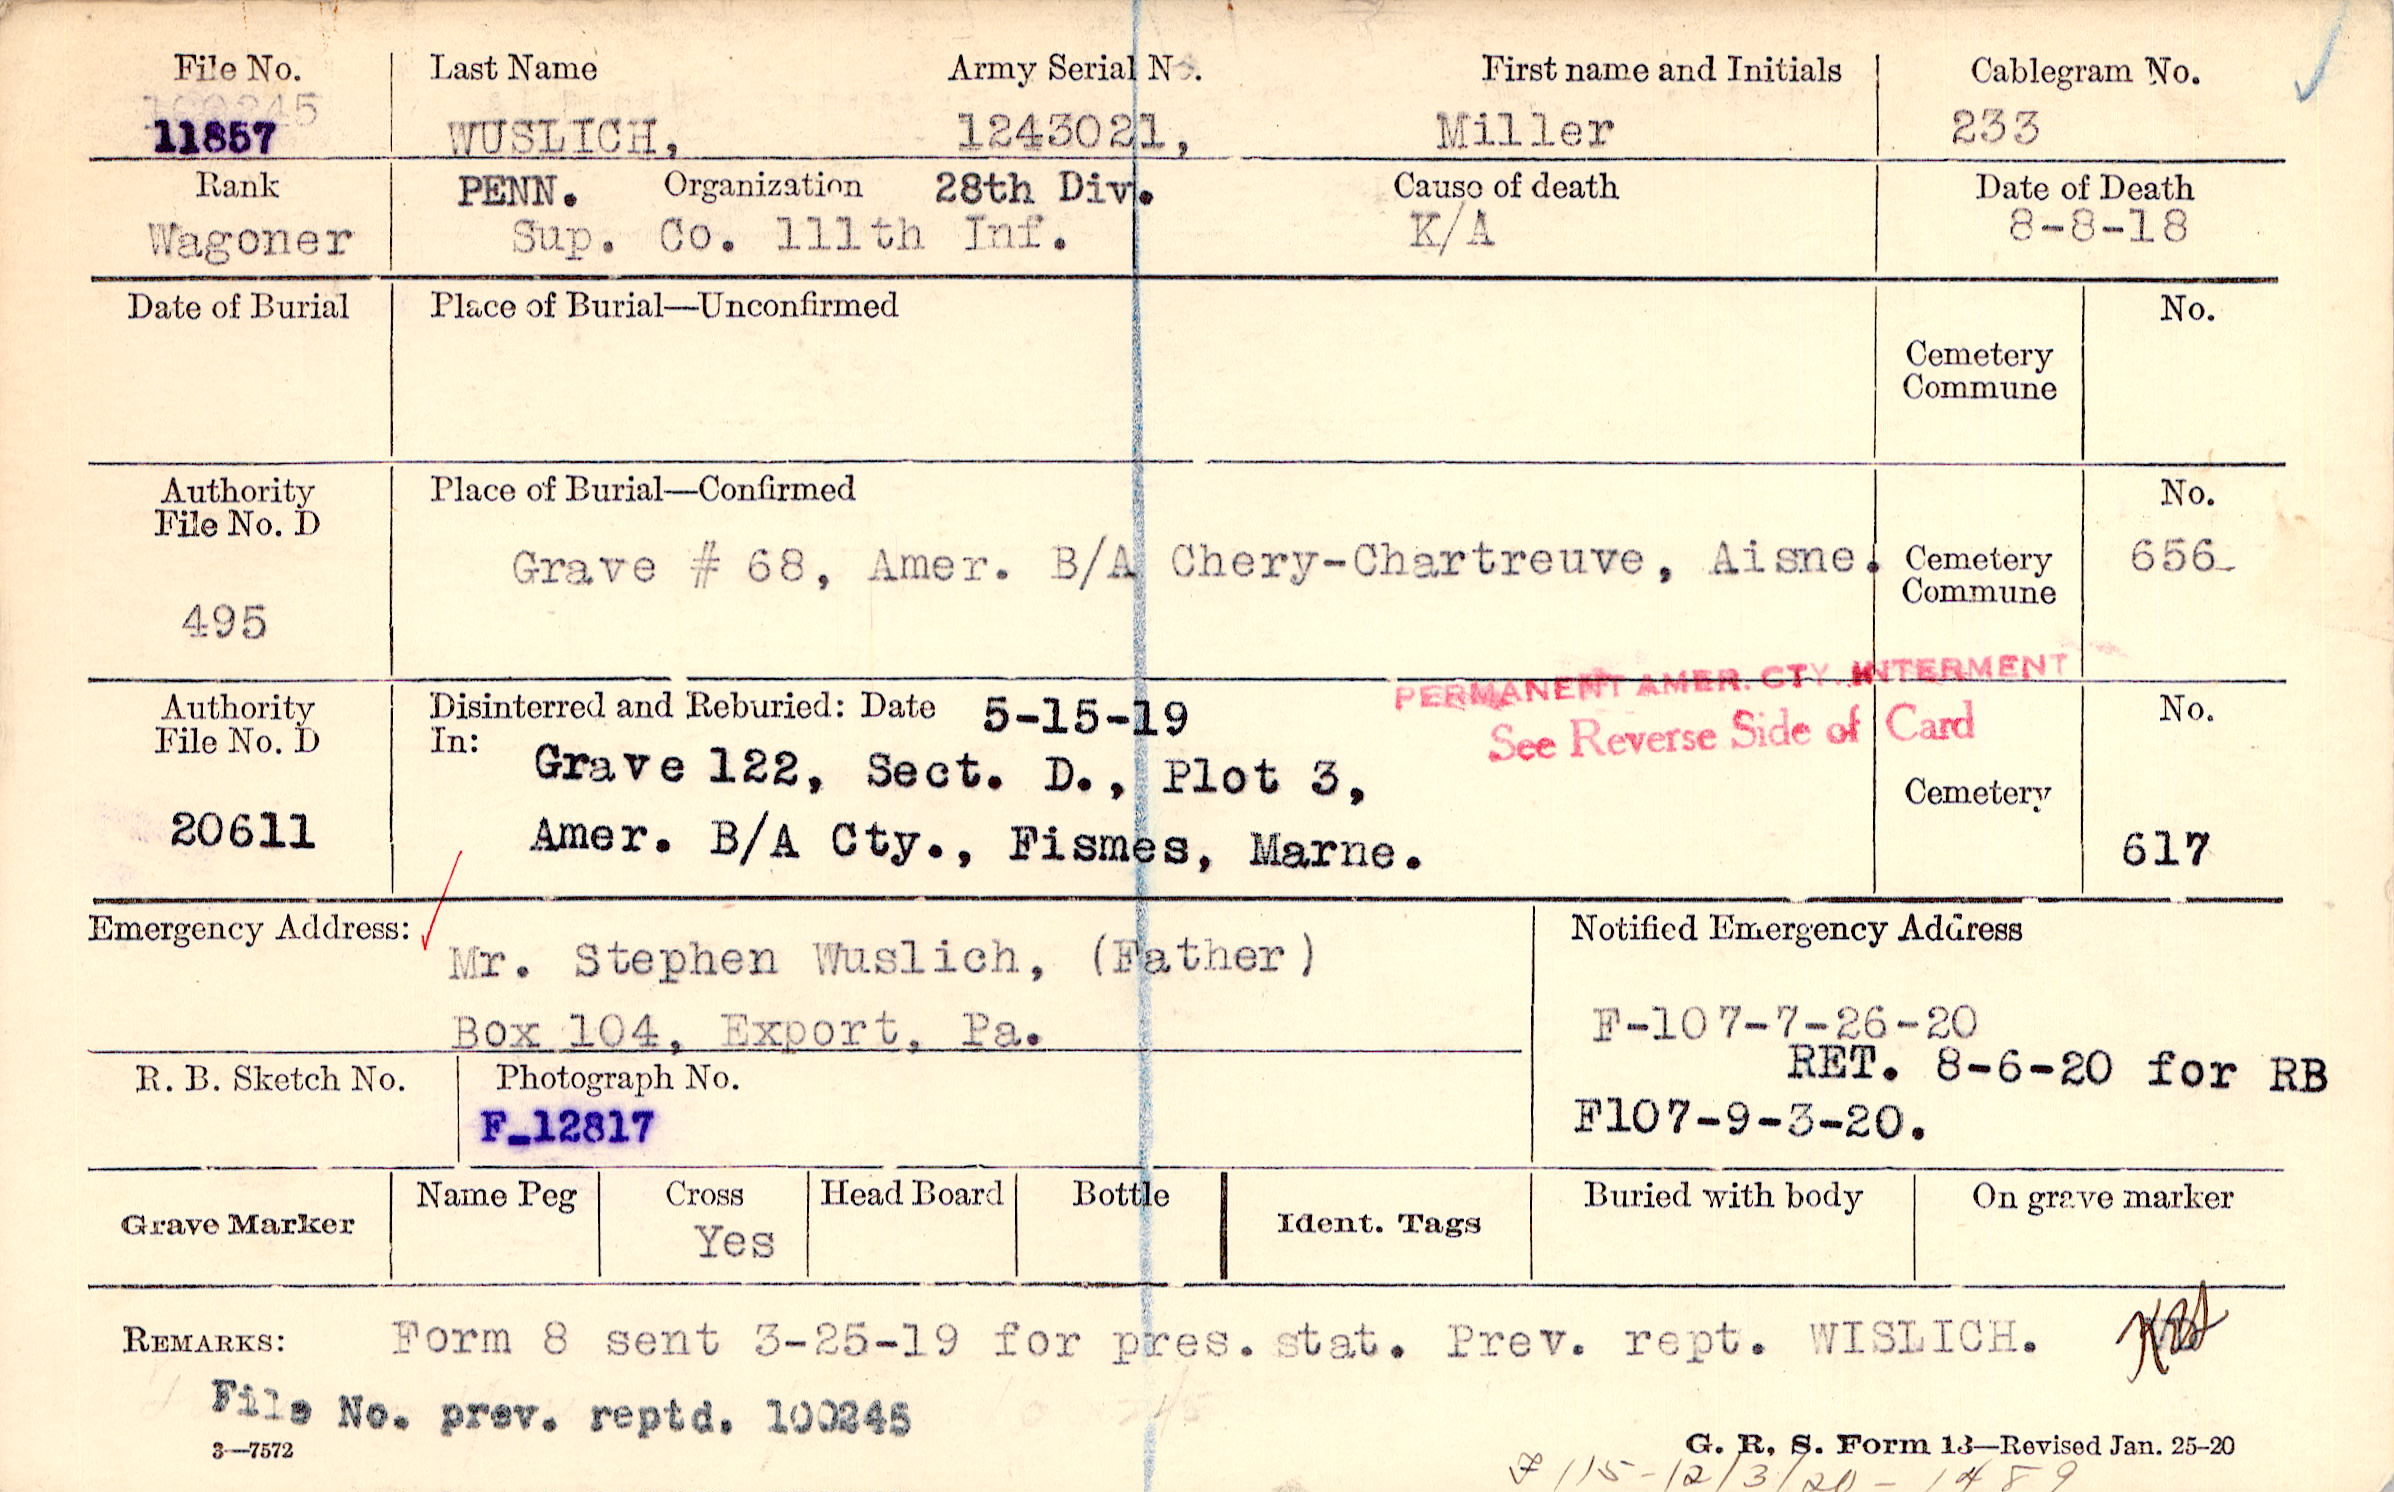 File No. Last Name Army Serial No. First name and Initials Cablegram No.
100245
11857 WUSLICH, 1243021, Miller 233
Rank PENN. Organization 28th Div. Cause of death Date of Death
Wagoner Sup. Co. 111th Inf. K/A 8-8-18
Date of Burial Place of Burial—Unconfirmed No.
Cemetery
Commune
Authority Place of Burial—Confirmed No.
File No. D
Grave # 68, Amer. B/A Chery-Chartreuve, Aisne. Cemetery 656
Commune
495
PERMANENT AMER. CTY. INTERMENT
See Reverse Side of Card
Authority Disinterred and Reburied: Date 5-15-19 No.
File No. D In:
Grave 122, Sect. D., Plot 3,
Cemetery
20611 Amer. B/A Cty., Fismes, Marne. 617
Emergency Address: Notified Emergency Address
Mr. Stephen Wuslich, (Father)
Box 104, Export, Pa. F-107-7-26-20
RET. 8-6-20 for RB
R. B. Sketch No. Photograph No.
F_12817 F107-9-3-20.
Grave Marker Name Peg Cross Head Board Bottle Ident. Tags Buried with body On grave marker
Yes
REMARKS: Form 8 sent 3-25-19 for pres. stat. Prev. rept. WISLICH.
File No. prev. reptd. 100245
3—7572 G. R. S. Form 13—Revised Jan. 25-20
F 115-12/3/20-1489